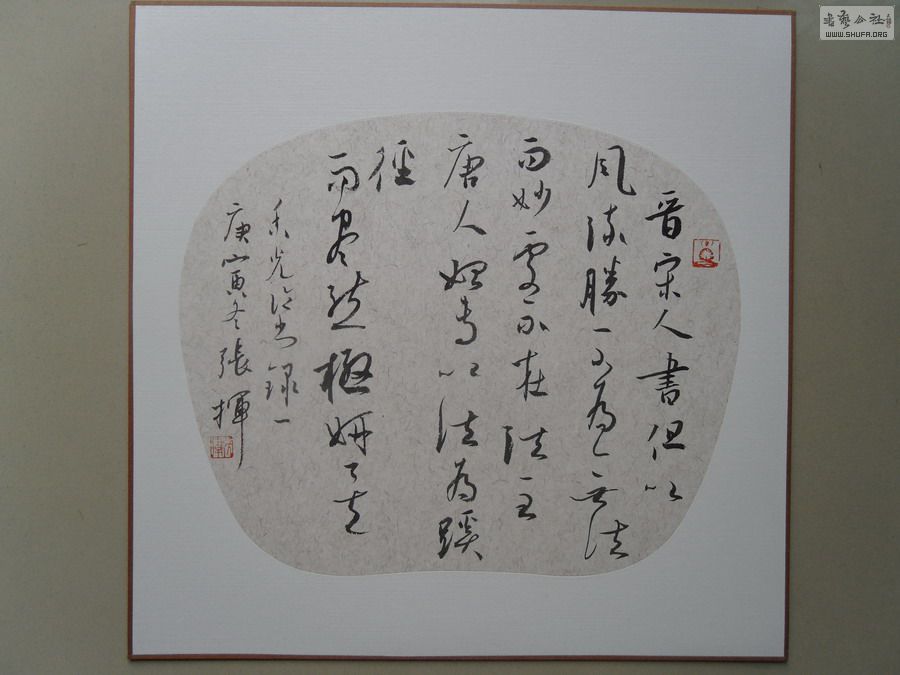 晋宋人書但以
風流勝不為無法
而妙處不在法至
唐人始專以法為蹊
徑
而盡態極妍矣
香光論書錄一
庚寅冬張揮
書藝公社
WWW.SHUFA.ORG